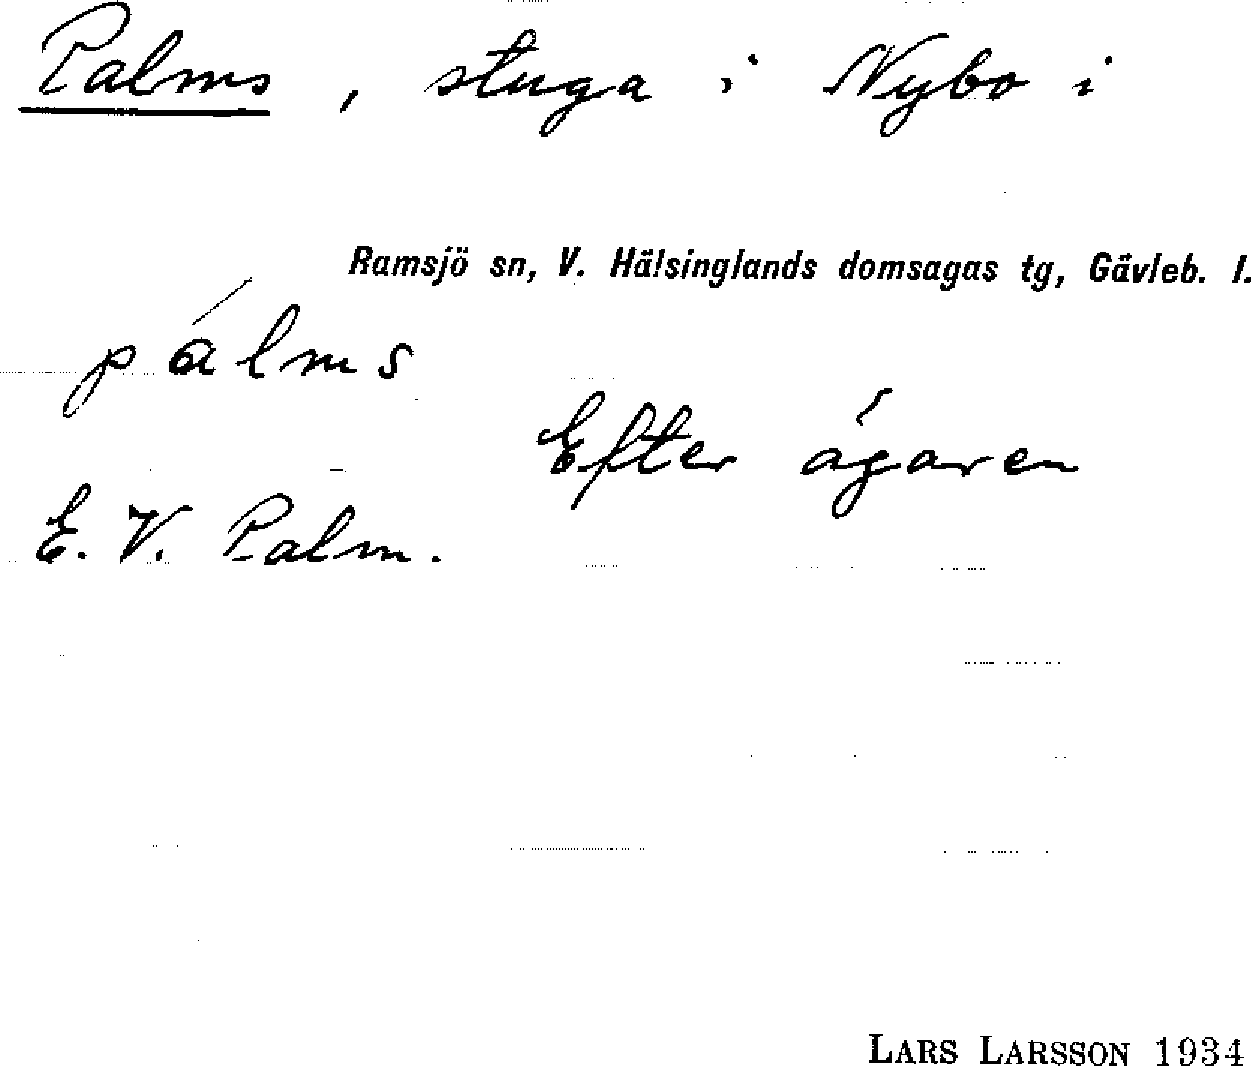 Palms, stuga i Nybo i
Ramsjö sn, V. Hälsinglands domsagas tg, Gävleb. l.
pálms
Efter ägaren
E. V. Palm.
LARS LARSSON 1934